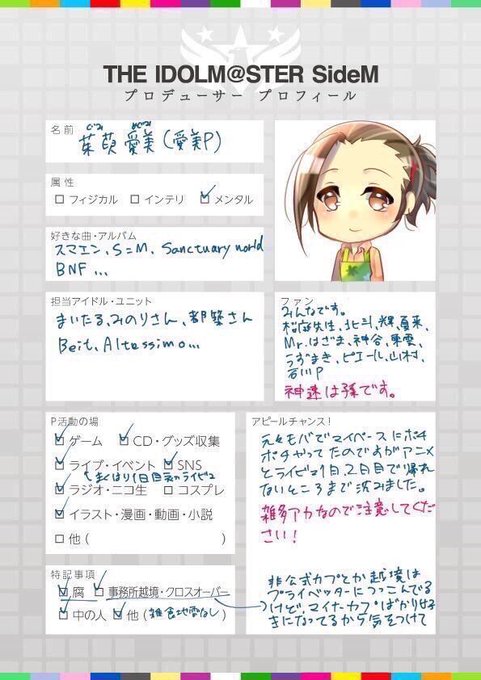 THE IDOLM@STER SideM
プロデューサー プロフィール
名前
愛美(愛美P)
属性
□ フィジカル □ インテリ ☑ メンタル
好きな曲・アルバム
スマエン、S=M、Sanctuary world
BNF...
担当アイドル・ユニット
まいたる、みのりさん、都築さん
Beit、Altessimo...
ファン
みんなです。
桜庭先生、北斗、輝、夏来、
Mr.はざま、神谷、東雲、
うづまき、ピエール、山村、
石川P
神速は孫です。
P活動の場
☑ ゲーム ☑ CD・グッズ収集
☑ ライブ・イベント ☑ SNS
☑ ラジオ・ニコ生 □ コスプレ
☑ イラスト・漫画・動画・小説
□ 他( )
アピールチャンス!
元々モバでマイペースにポチ
ポチやってたのですがアニメ
とライビュ1日、2日目で帰れ
ないところまで沈みました。
雑多アカなので注意してくだ
さい!
特記事項
☑ 腐 ☑ 事務所越境・クロスオーバー
☑ 中の人 ☑ 他(雑食地雷なし)
非公式カプとか越境は
プライベッターにつっこんでる
けど、マイナーカプばかり好
きになってるから気をつけて